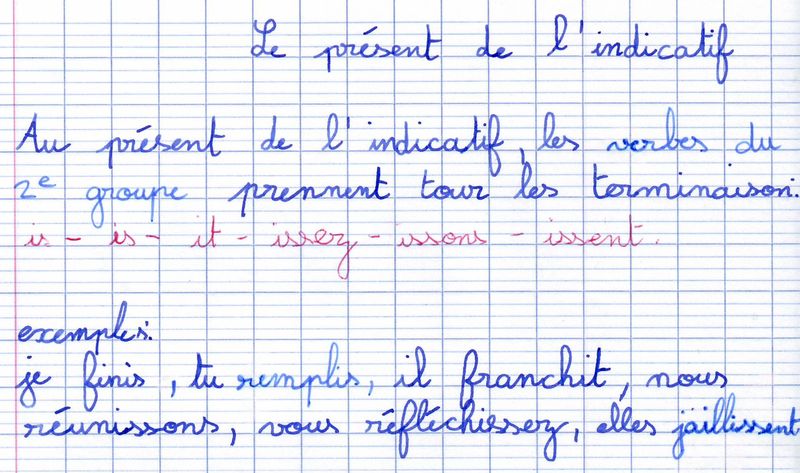 Le présent de l'indicatif
Au présent de l'indicatif, les verbes du
2e groupe prennent tour les terminaison:
is - is - it - issez - issons - issent.
exemples:
je finis, tu remplis, il franchit, nous
réunissons, vous réfléchissez, elles jaillissent